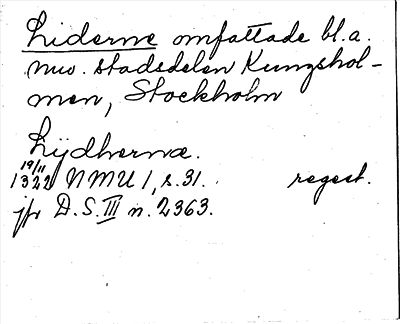 Liderne omfattade bl.a.
nuv. stadsdelen Kungshol-
men, Stockholm
Lijdhernæ.
19/11
1322 NMU 1, s. 31. regest.
jfr D.S. III n. 2363.